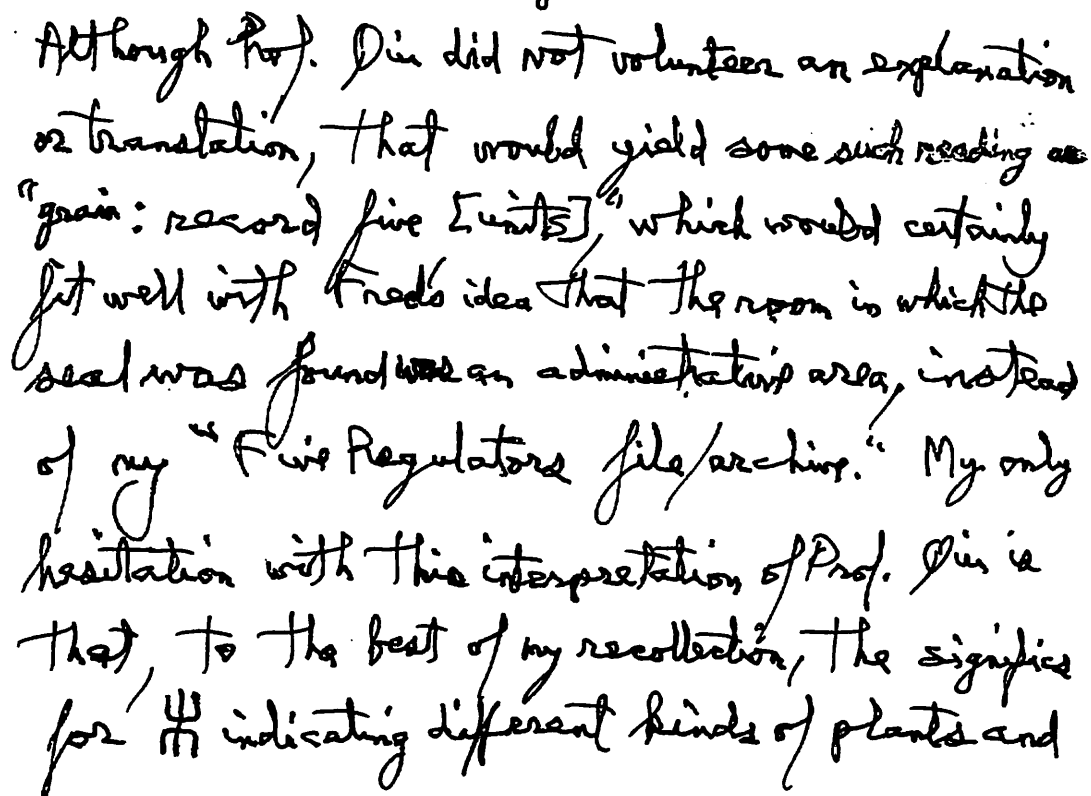 Although Prof. Qiu did not volunteer an explanation
or translation, that would yield some such reading as
"grain: record five [units]," which would certainly
fit well with Fred's idea that the room in which the
seal was found was an administrative area, instead
of my "Five Regulators file/archive." My only
hesitation with this interpretation of Prof. Qiu is
that, to the best of my recollection, the significs
for indicating different kinds of plants and